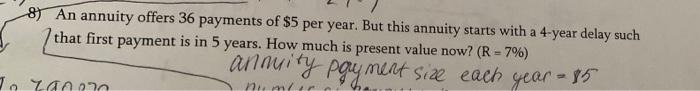 8) An annuity offers 36 payments of $5 per year. But this annuity starts with a 4-year delay such
that first payment is in 5 years. How much is present value now? (R = 7%)
annuity payment size each year = $5